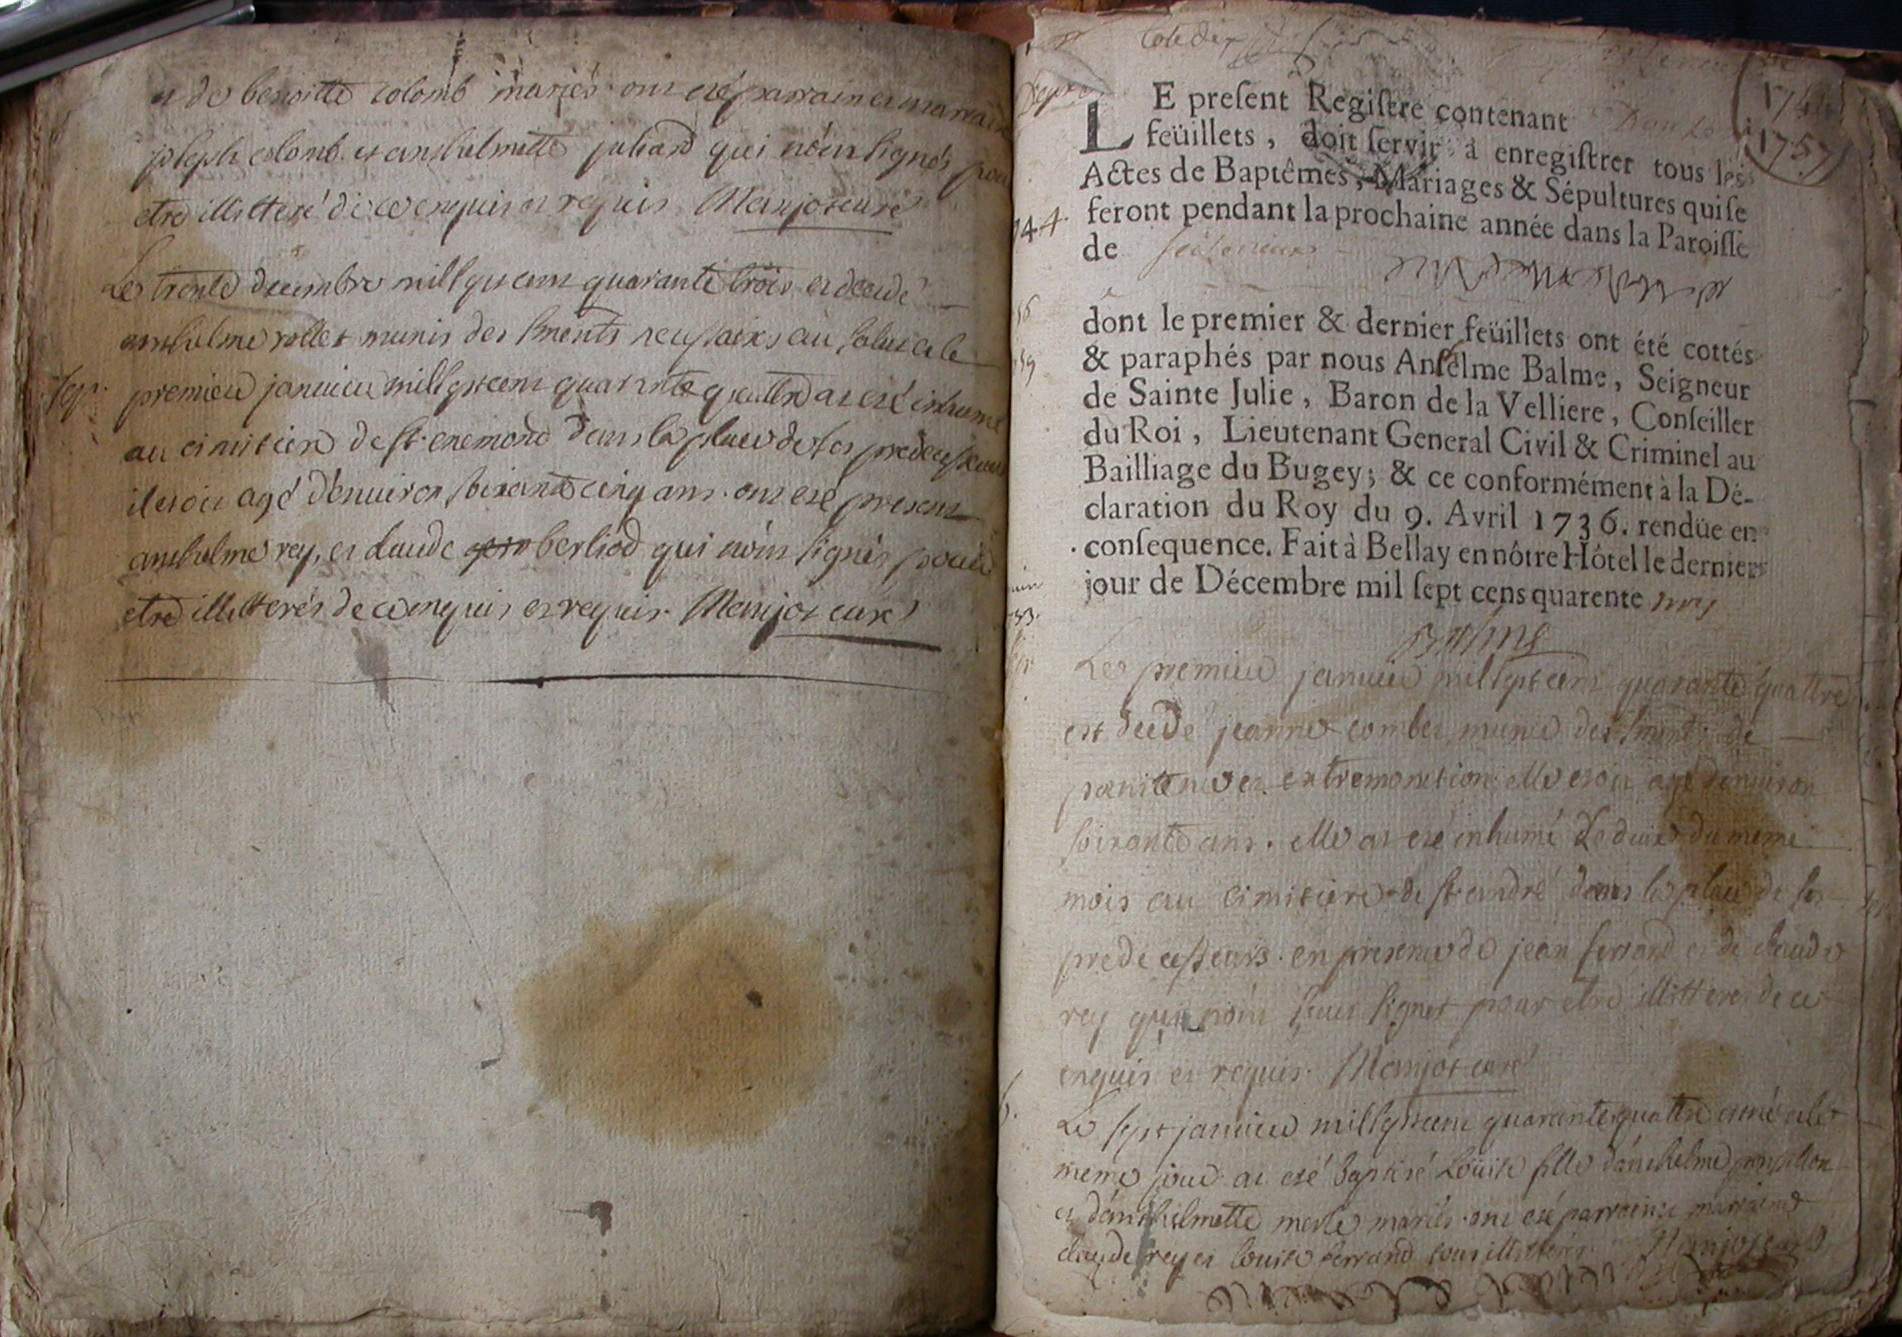 et de benoitte colomb mariés ont eté parrain et marraine
joseph colomb et anthelmette juliand qui n'ont signés pour
etre illitteré de ce enquis et requis Manjot curé
Le trente decembre mil sept cent quarante trois et decedé
anthelme rollet munis des sments necessaires au salut et le
Sep.
premier janvier mil sept cent quarante quattre at eté inhumé
au cimitiere de st enemond dans la place de ses predecesseurs
il etoit agé d'environ soixante cinq ans ont eté present
anthelme rey, et claude berliod qui n'ont signés pour
etre illitterés de ce enquis et requis Manjot curé
1744
1757
LE present Registre contenant
feüillets, doit servir à enregistrer tous les
Actes de Baptêmes, Mariages & Sépultures qui se
744.
feront pendant la prochaine année dans la Paroisse
de
dont le premier & dernier feüillets ont été cottés
& paraphés par nous Anselme Balme, Seigneur
de Sainte Julie, Baron de la Velliere, Conseiller
du Roi, Lieutenant General Civil & Criminel au
Bailliage du Bugey; & ce conformément à la Dé-
claration du Roy du 9. Avril 1736. rendüe en
consequence. Fait à Bellay en nôtre Hôtel le dernier
jour de Décembre mil sept cens quarente trois
Balme
Le premier janvier mil sept cent quarante quattre
est decedé jeanne combet munie des sments de
penitence et extremonction elle etoit agé d'environ
soixante ans. elle at eté inhumé le deux du meme
mois au cimitiere de st andré dans la place de ses
predecesseurs en presence de jean ferrand et de claude
rey qui n'ont sous signes pour etre illitteres de ce
enquis et requis. Manjot curé
Le sept janvier mil sept cent quarante quattre est né et le
meme jour at eté baptisé Louise fille d'anthelme
et d'anthelmette merle mariés ont eté parrain et marraine
claude rey et louise ferrand tous illitterés Manjot curé